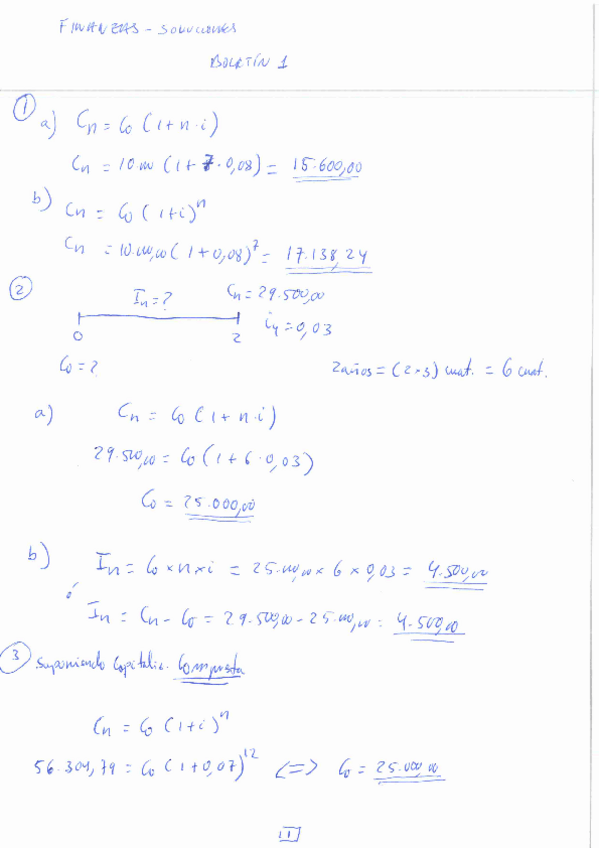 FINANZAS - SOLUCIONES
BOLETÍN 1
1
a) Cn = Co (1 + n · i)
Cn = 10.000 (1 + 7 · 0,08) = 15.600,00
b) Cn = Co (1+i)^n
Cn = 10.000,00 (1 + 0,08)^7 = 17.138,24
2
In = ? Cn = 29.500,00
i4 = 0,03
0 2
Co = ? 2 años = (2×3) cuat. = 6 cuat.
a) Cn = Co (1 + n · i)
29.500,00 = Co (1 + 6 · 0,03)
Co = 25.000,00
b) In = Co × n × i = 25.000,00 × 6 × 0,03 = 4.500,00
ó
In = Cn - Co = 29.500,00 - 25.000,00 = 4.500,00
3 Suponiendo Capitaliz. Compuesta
Cn = Co (1+i)^n
56.304,79 = Co (1 + 0,07)^12 <=> Co = 25.000,00
1